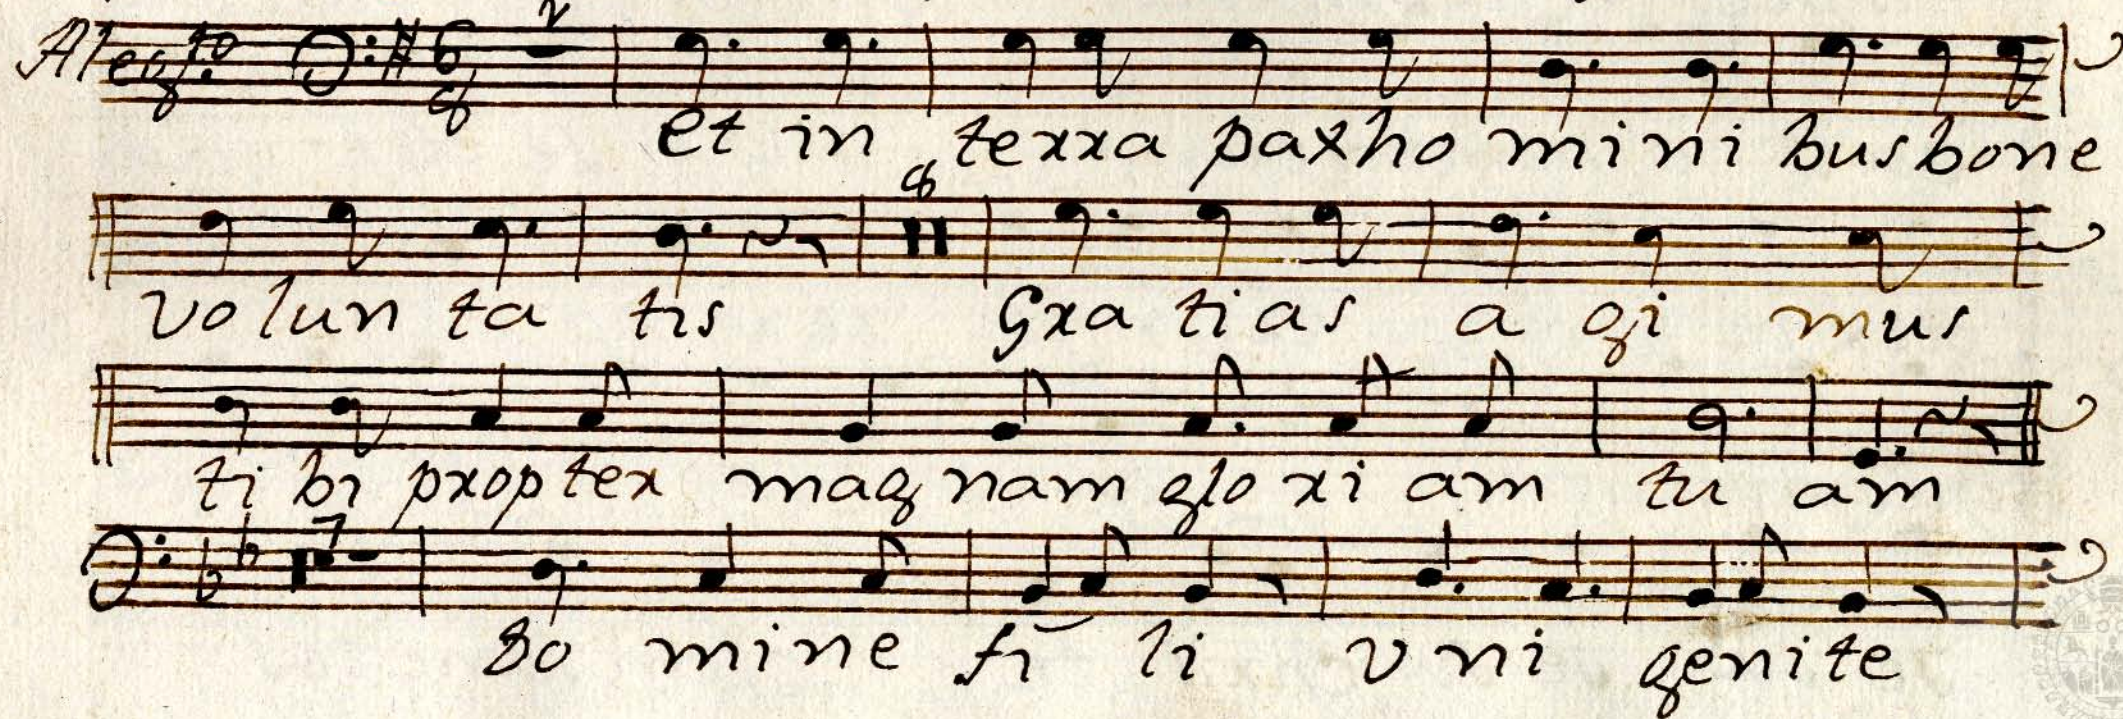 Alegto 6 8 2
et in terra pax ho mini bus bone
8
volun ta tis Gratias a gi mus
ti bi propter magnam gloriam tu am
7
Domine fi li Vni genite